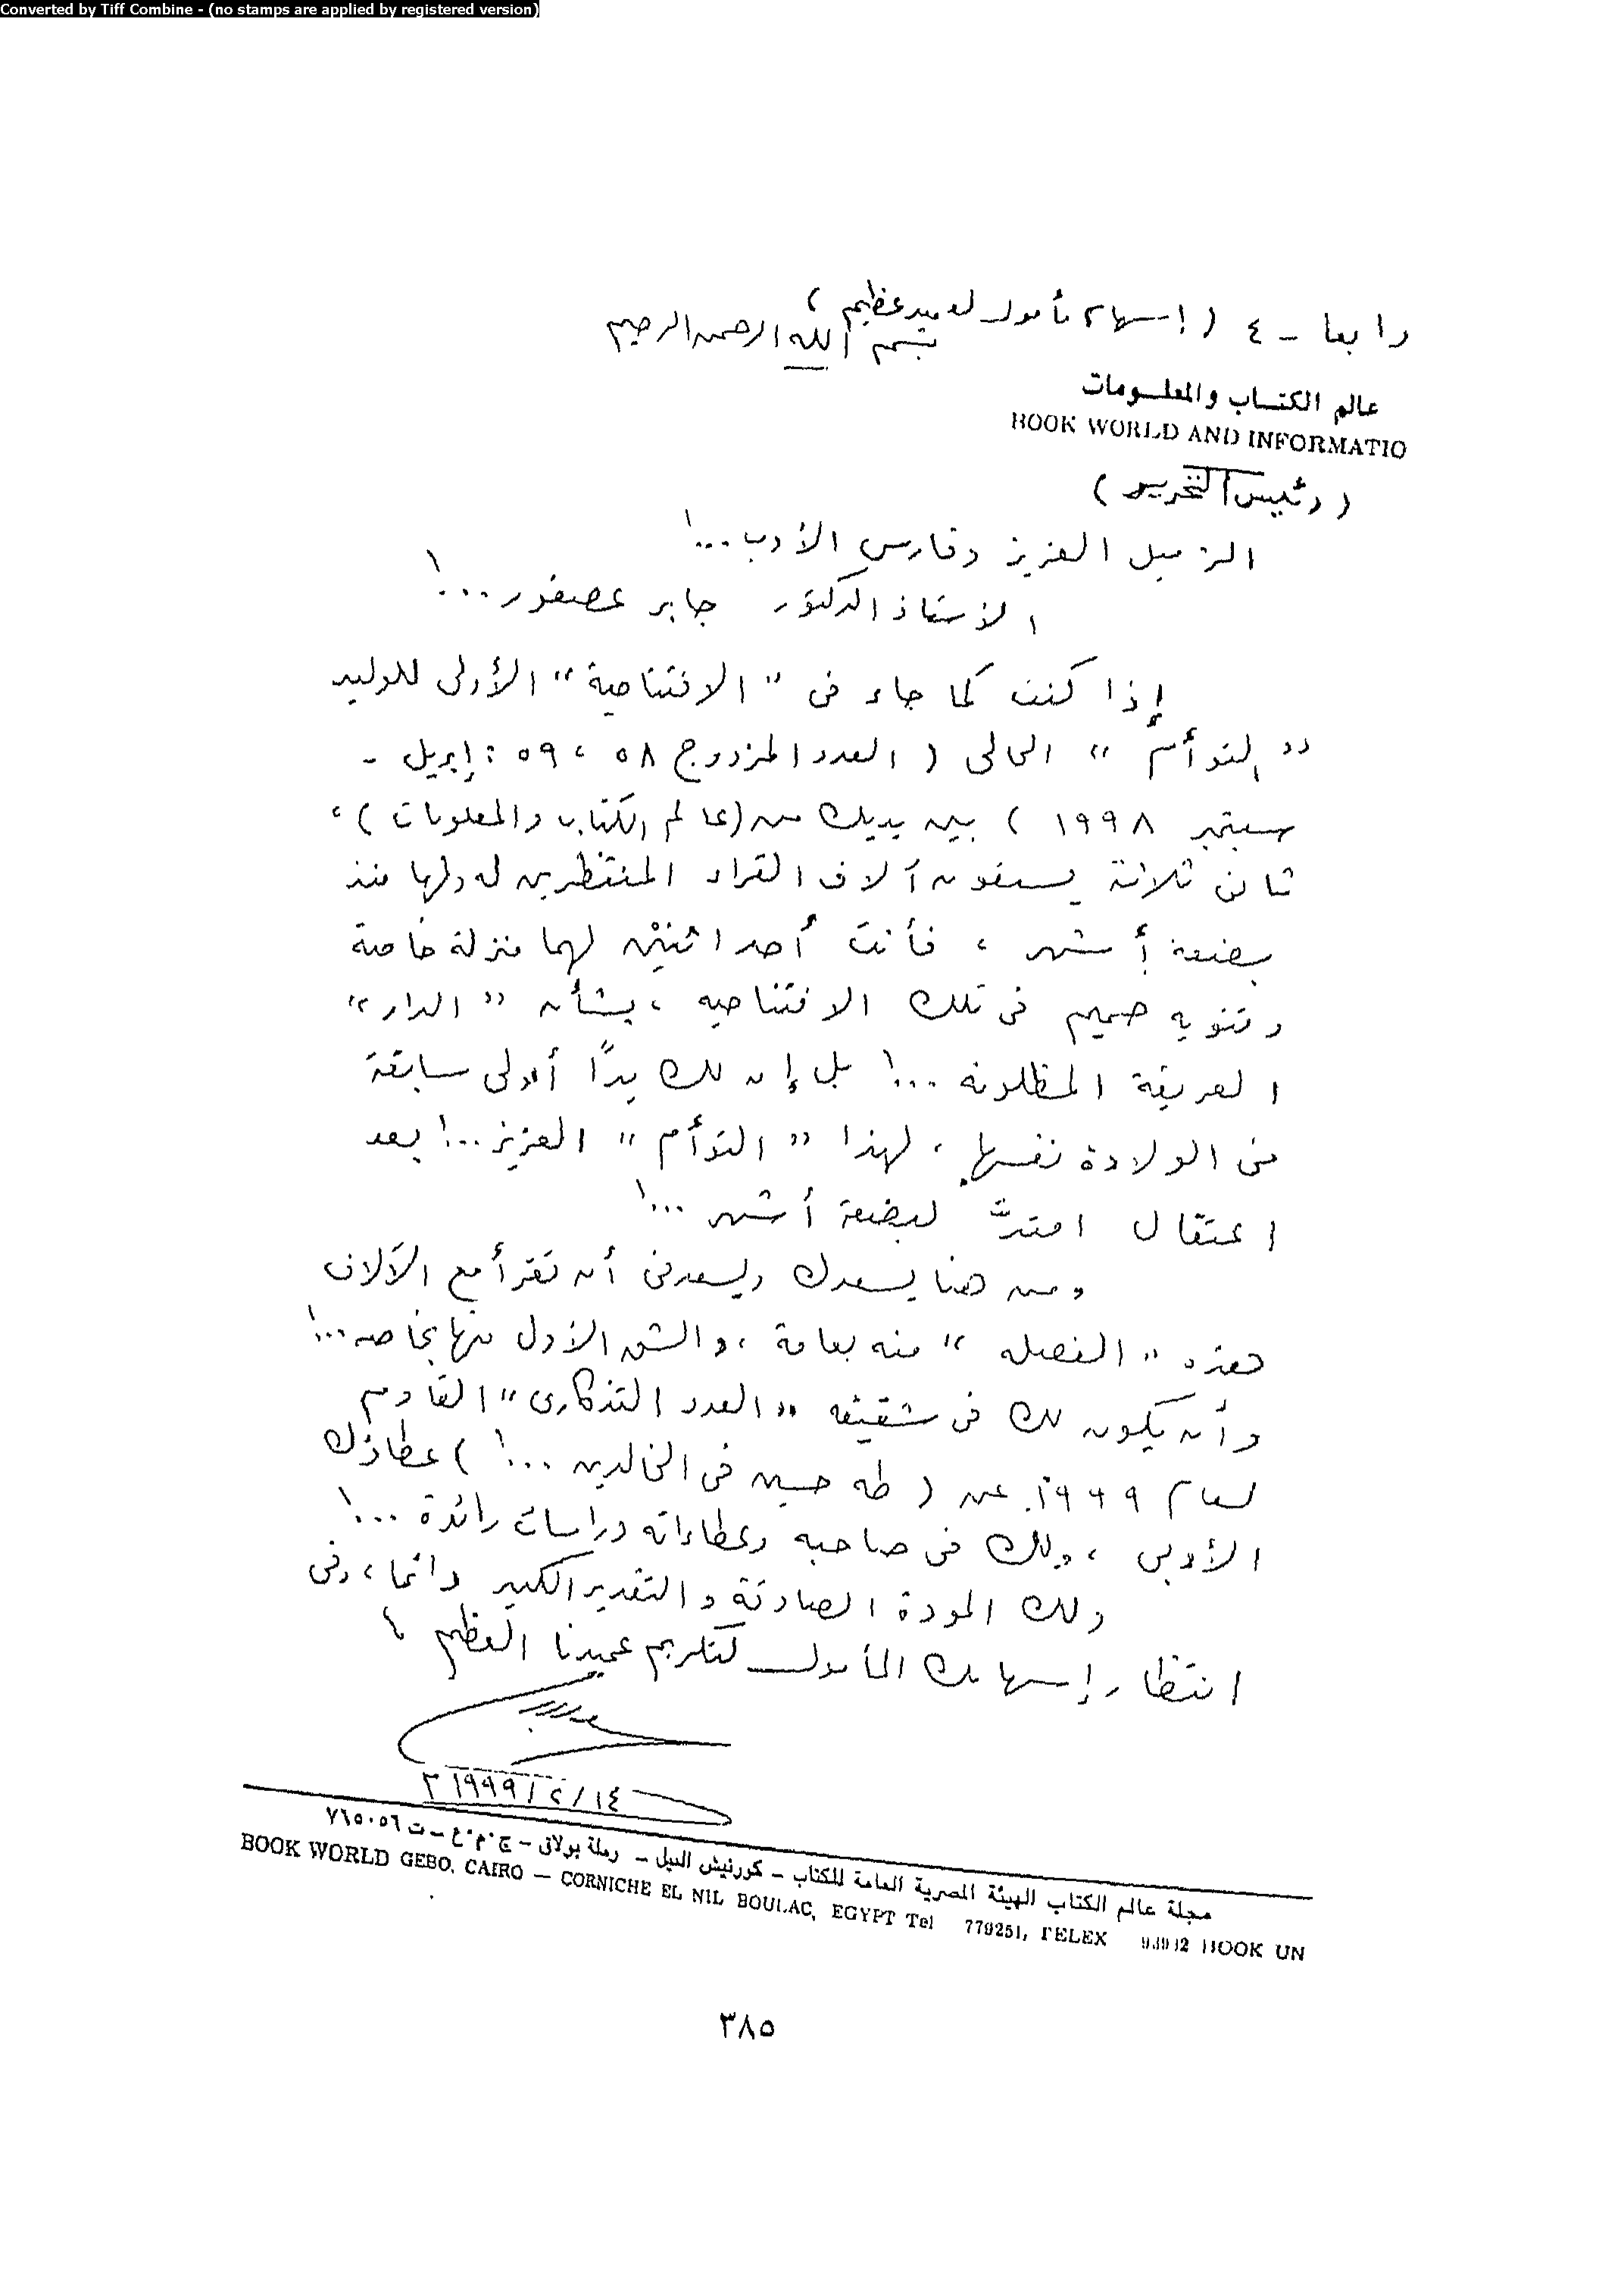 Converted by Tiff Combine - (no stamps are applied by registered version)
رابعا - ٤ ( إسهام مأمول لعميد عظيم )
بسم الله الرحمن الرحيم
عالم الكتـاب والمعلـومات
BOOK WORLD AND INFORMATIO
( رئيس التحرير )
الزميل العزيز وفارس الأدب ...!
الأستاذ الدكتور جابر عصفور ...!
إذا كنت كما جاء فى " الافتتاحية " الأولى للوليد
" التوأم " الحالى ( العدد المزدوج ٥٨ ، ٥٩ : إبريل -
سبتمبر ١٩٩٨ ) بين يديك من (عالم الكتاب والمعلومات ) ،
ثانى ثلاثة يسبقون آلاف القراء المنتظرين له ولها منذ
بضعة أشهر ، فأنت أحد اثنيْن لهما منزلة خاصة
وتنويه صميم فى تلك الافتتاحيه ، بشأن " الدار "
العريقة المظلومه ...! بل إن لك يدًا أولى سابقة
فى الولادة نفسها ، لهذا " التوأم " العزيز ...! بعد
اعتقال امتدَّ لبضعة أشهر ...!
ومن هنا يسعدك ويسعدنى أن تقرأ مع الآلاف
هذه " الفصله " منه بعامة ، والشق الأول منها بخاصه ...!
وأن يكون لك فى شقيقه " العدد التذكارى " القادم
لعام ١٩٩٩ عن ( طه حسين فى الخالدين ...! ) عطاؤك
الأدبى ، ولك فى صاحبه وعطاءاته دراسات رائدة ...!
ولك المودة الصادقة والتقدير الكبير دائما ، وفى
انتظار إسهامك المأمول لتكريم عميدنا العظيم ،
١٤ / ٢ / ١٩٩٩ م
مجلة عالم الكتاب الهيئة المصرية العامة للكتاب - كورنيش النيل - رملة بولاق - ج.م.ع - ت ٧٦٥٠٥٦
BOOK WORLD GEBO, CAIRO — CORNICHE EL NIL BOULAC, EGYPT Tel 779251, TELEX BOOK UN
٣٨٥